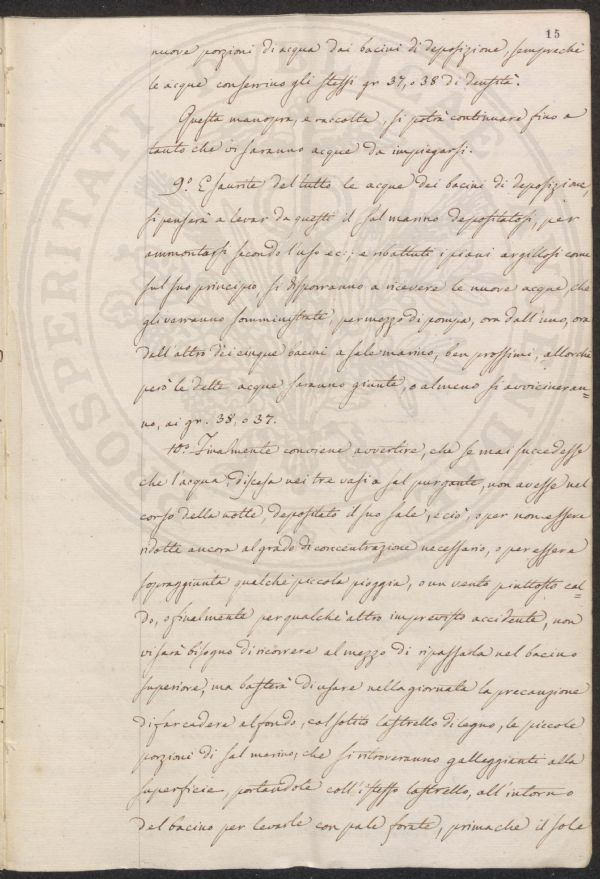 15
nuove porzioni di acqua dai bacini di deposizione, sempreché
le acque conservino gli stessi gr 37, o 38 di densità.
Questa manopra, e raccolta, si potrà continuare fino a
tanto che vi saranno acque da impiegarsi.
9.º Esaurite del tutto le acque dei bacini di deposizione,
si penserà a levar da questi il sal marino depositatosi, per
ammontarsi secondo l'uso ec:; e ribattuti i piani argillosi come
sul suo principio, si disporranno a ricevere le nuove acque, che
gli verranno somministrate, per mezzo di pompa, ora dall'uno, ora
dell'altro dei cinque bacini a sale marino, ben prossimi, allorché
però le dette acque saranno giunte, o almeno si avvicineran=
no, ai gr. 38, o 37.
10.º Finalmente conviene avvertire, che se mai succedesse
che l'acqua discesa nei tre vasi a sal purgante, non avesse nel
corso della notte, depositato il suo sale, e ciò, o per non essere
ridotta ancora al grado di concentrazione necessario, o per essere
sopraggiunta qualche piccola pioggia, o un vento piuttosto cal=
do, o finalmente per qualche altro imprevisto accidente, non
vi sarà bisogno di ricorrere al mezzo di ripassarla nel bacino
superiore, ma basterà di usare nella giornata la precauzione
di far cadere al fondo, col solito rastrello di legno, le piccole
porzioni di sal marino, che si ritroveranno galleggianti alla
superficie, portandole coll'istesso rastrello, all'intorno
del bacino per levarle con pale forate, prima che il sole
PROSPERITATI